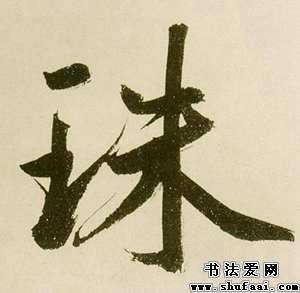 珠
书法爱网
www.shufaai.com